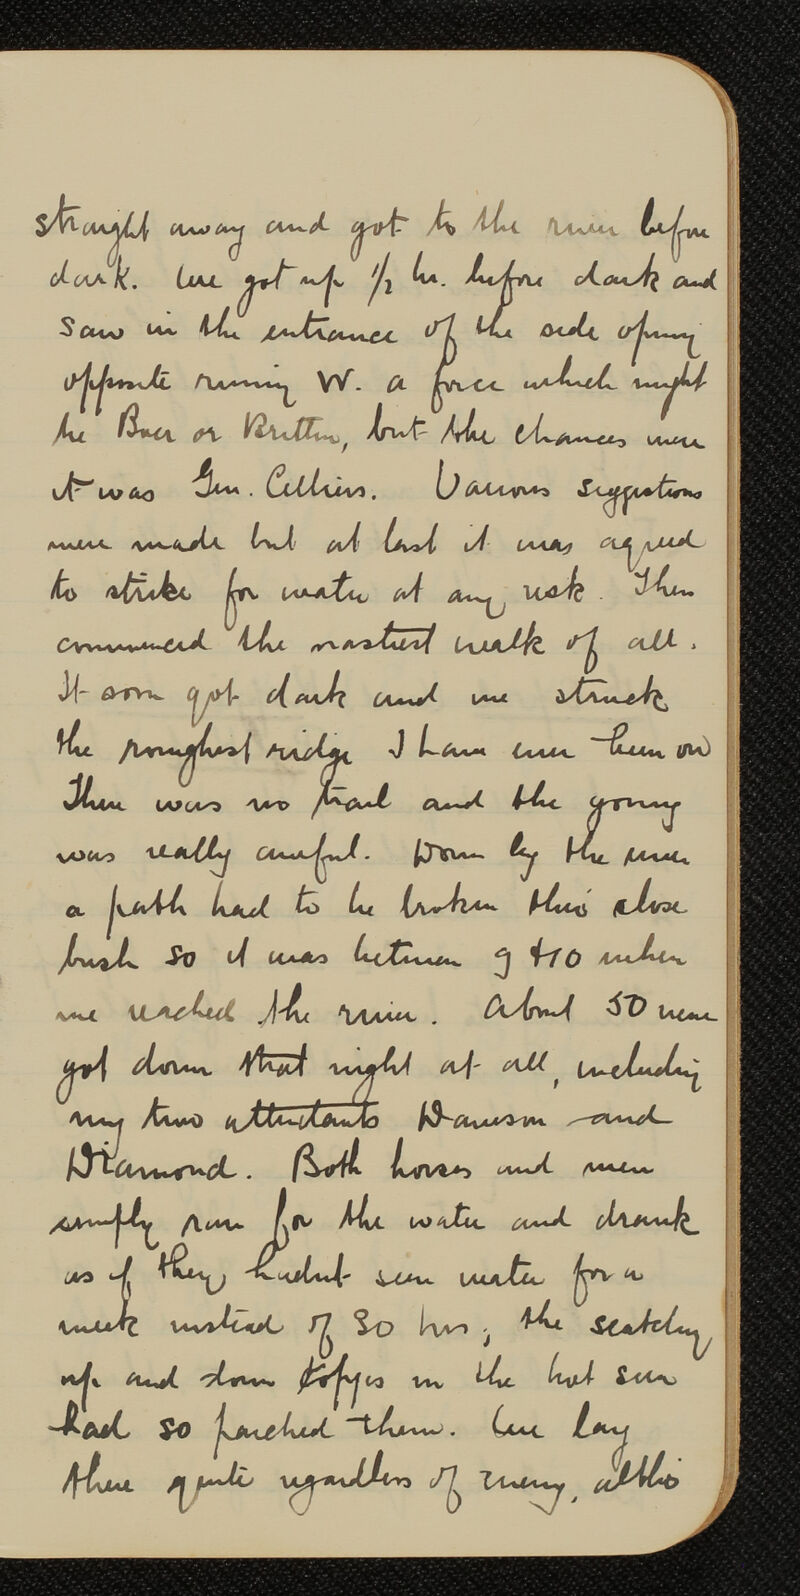 straight away and got to the river before
dark. We got up 1/2 hr. before dark and
saw in the entrance of the side opening
opposite running W. a force which might
be Boer or British, but the chances were
it was Gen. Celliers. Various suggestions
were made but at last it was agreed
to strike for water at any risk. Then
commenced the nastiest walk of all.
It soon got dark and we struck
the roughest ridge I have ever been on
There was no trail and the going
was really awful. Down by the river
a path had to be broken thro' close
bush so it was between 9 & 10 when
we reached the river. About 50 men
got down that night at all, including
my two attendants Dawson and
Diamond. Both horses and men
simply ran for the water and drank
as if they hadn't seen water for a
week instead of 30 hrs; the
up and down kopjes in the hot sun
had so parched them. We lay
there quite regardless of enemy, altho'